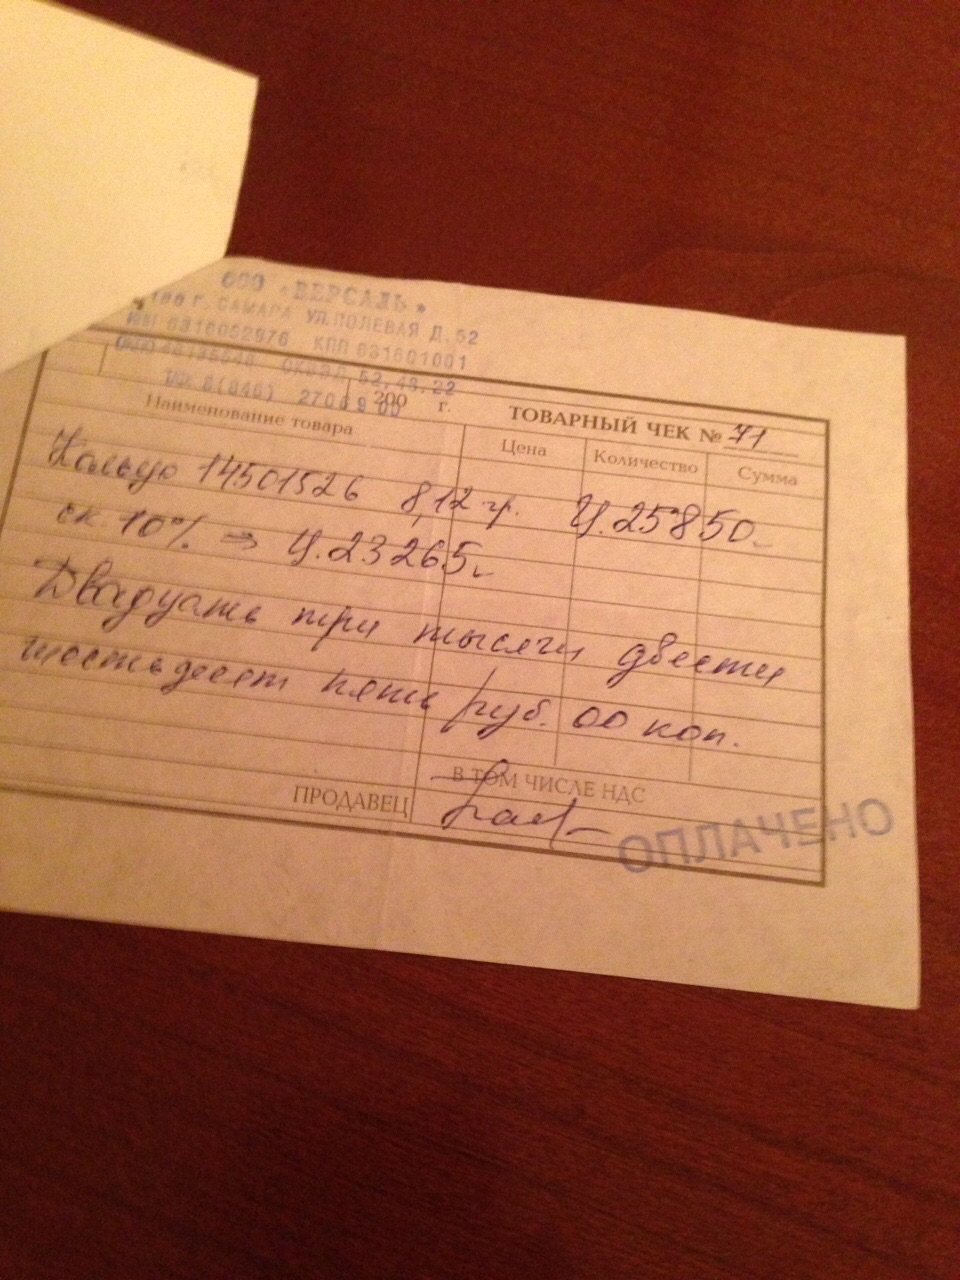 ООО «ВЕРСАЛЬ»
Г. САМАРА УЛ.ПОЛЕВАЯ Д.52
ИНН 6316052976 КПП 631601001
ОКВЭД 52.48.22
8(846)
200 г. ТОВАРНЫЙ ЧЕК № 71
Наименование товара Цена Количество Сумма
Кольцо 14501526 8,12 гр. Ц.25850.-
ск. 10% ⇒ Ц.23265.-
Двадцать три тысячи двести
шестьдесят пять руб. 00 коп.
В ТОМ ЧИСЛЕ НДС
ПРОДАВЕЦ
ОПЛАЧЕНО